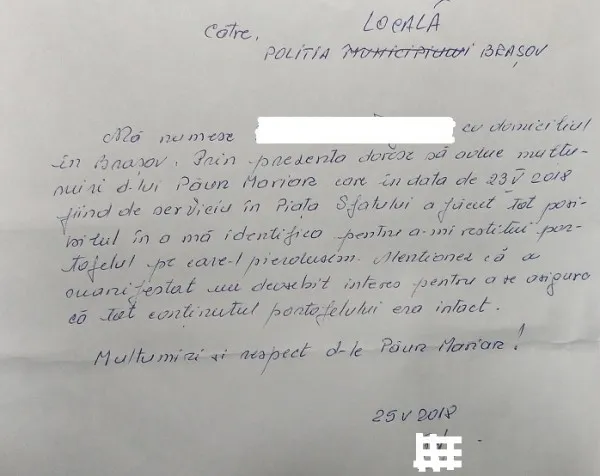 LOCALĂ
Către,
POLIȚIA MUNICIPIULUI BRAȘOV
Mă numesc cu domiciliul
în Brașov. Prin prezenta doresc să aduc mulțu-
miri d-lui Păun Marian care în data de 23 V 2018
fiind de serviciu în Piața Sfatului a făcut tot posi-
bilul în a mă identifica pentru a-mi restitui por-
tofelul pe care-l pierdusem. Menționez că a
manifestat un deosebit interes pentru a se asigura
că tot conținutul portofelului era intact.
Mulțumiri și respect d-le Păun Marian!
25 V 2018